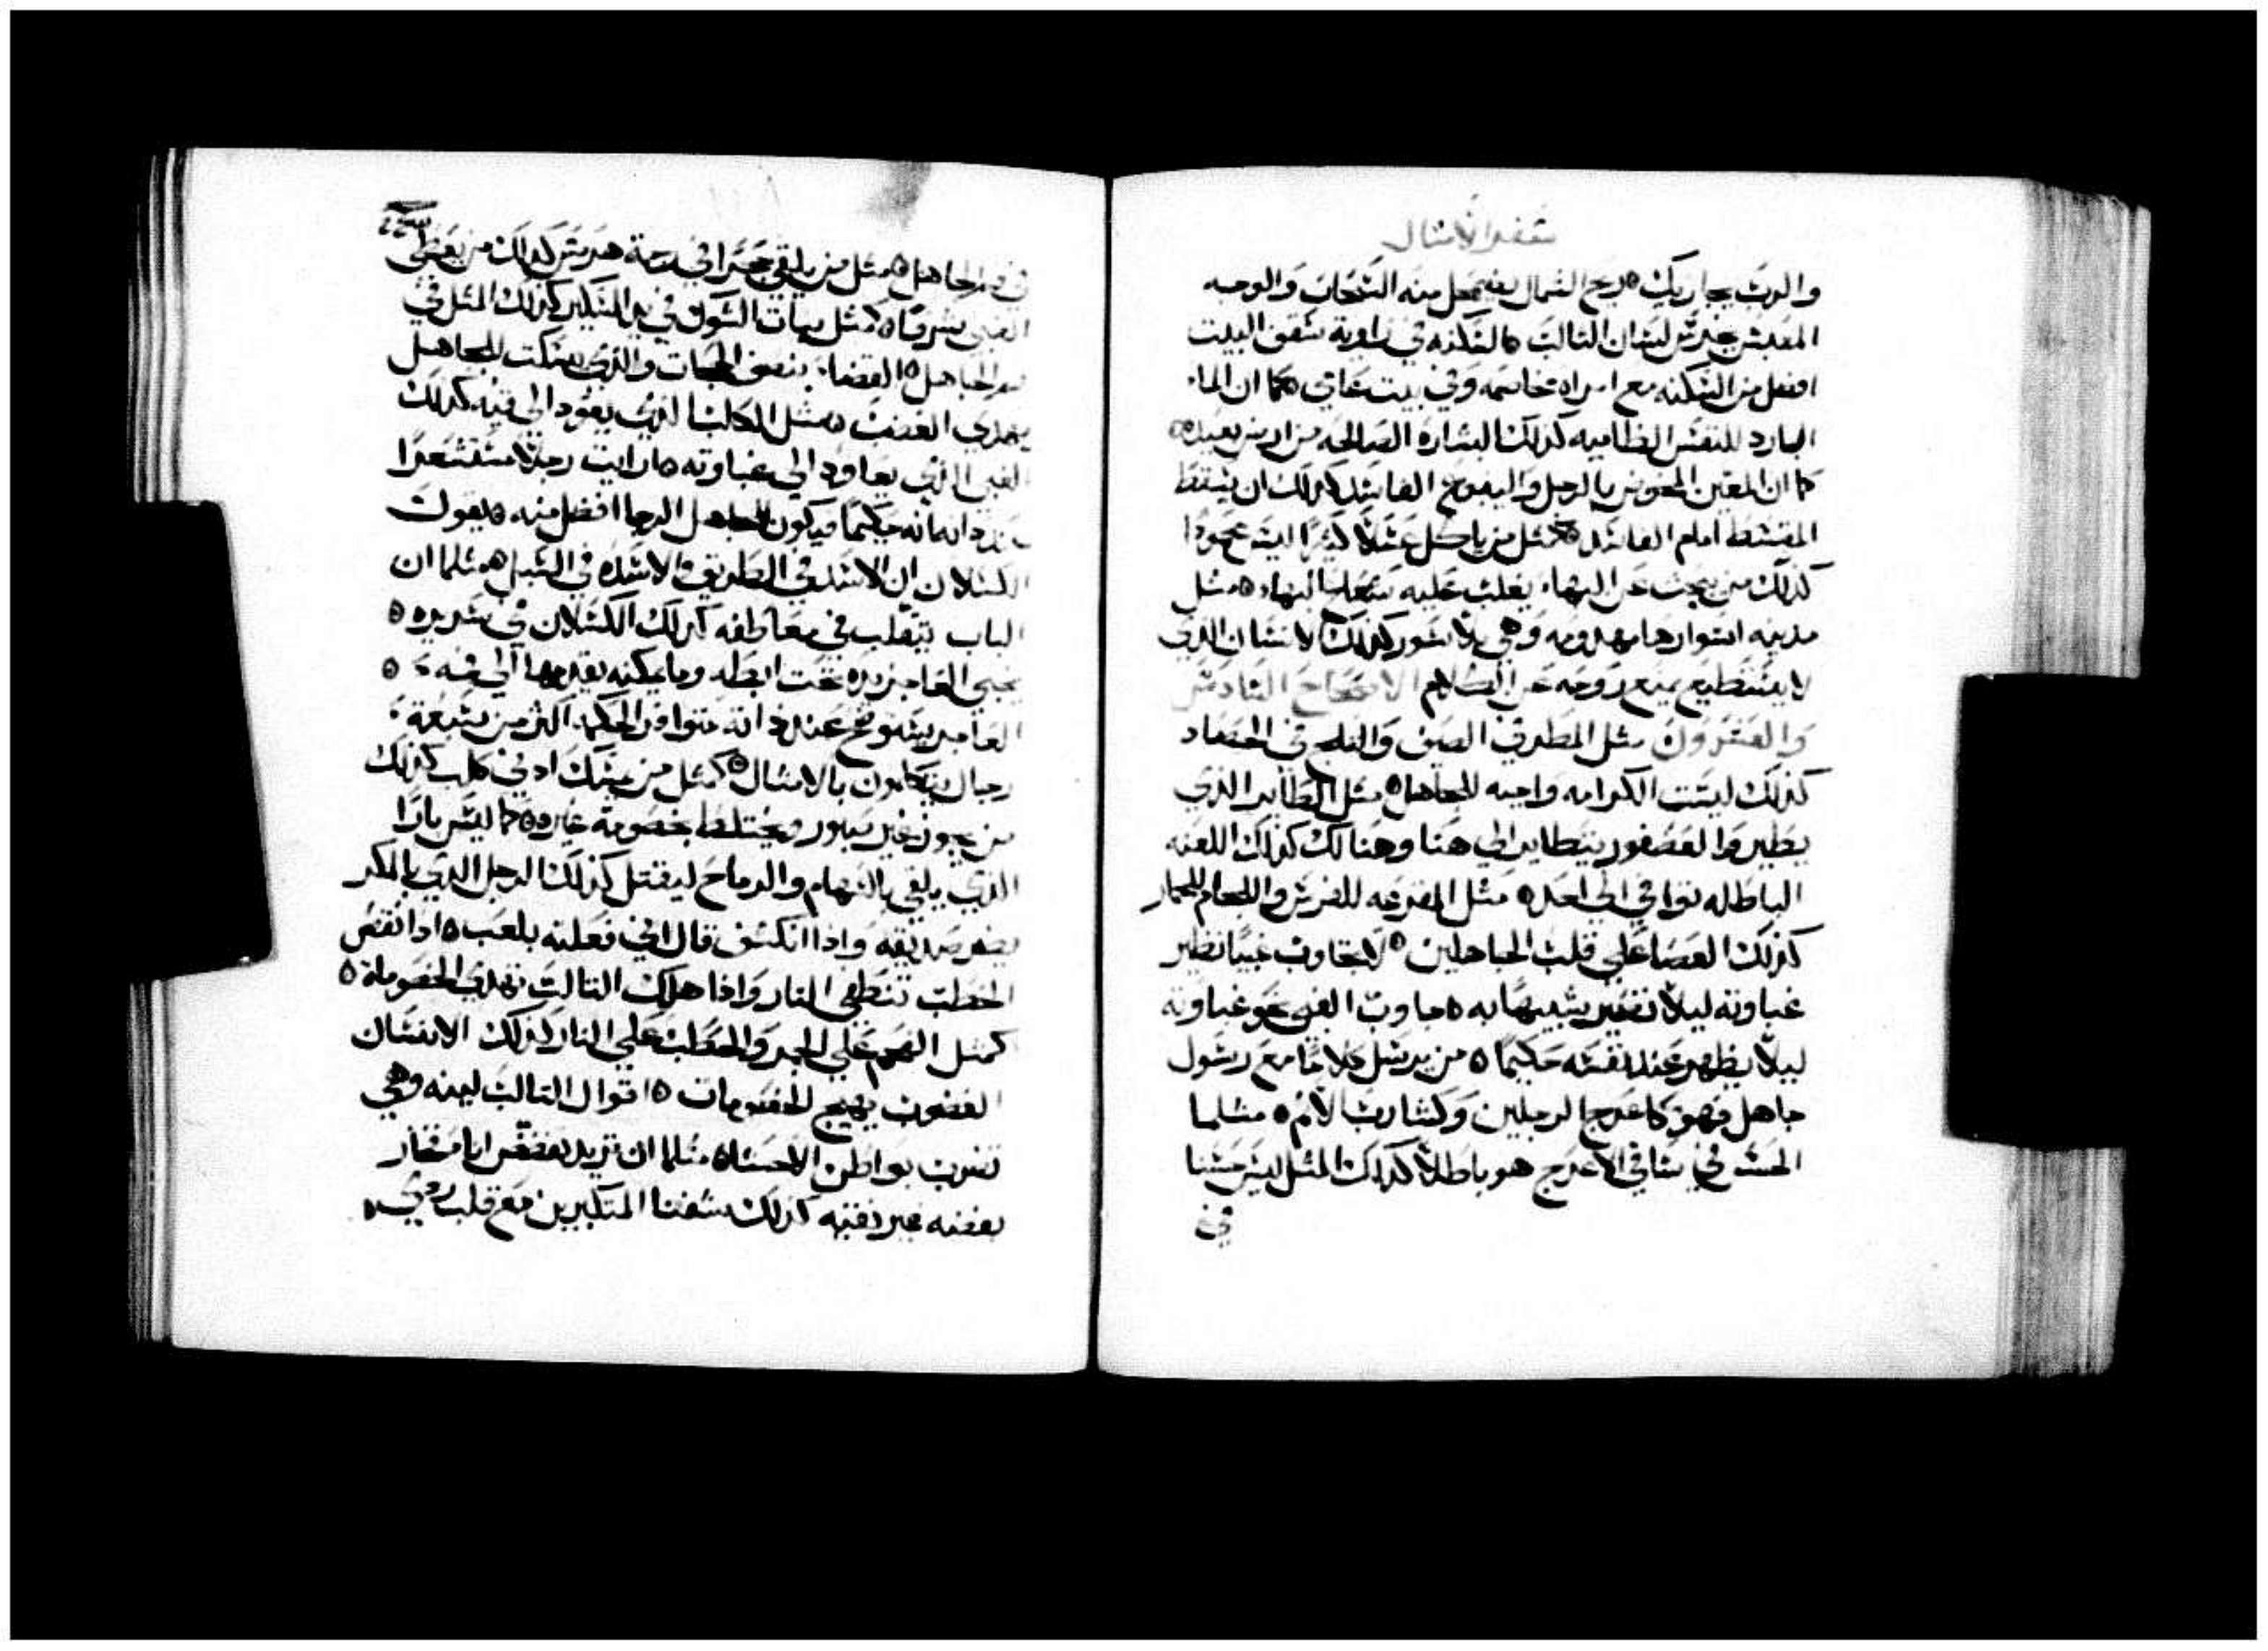 سفر الامثال
والرب يجازيك ٥ ريح الشمال يضمحل منه السحاب والوجه
المعبس خير من لسان الثالب ٥ السكنه في زاوية سقف البيت
افضل من السكنه مع امراه مخاصمه وفي بيت عاتي ٥ كما ان الماء
البارد للنفس الظاميه كذلك البشاره الصالحه من ارض بعيده ٥
كما ان المعين المخوض بالرجل والينبوع الفاسد كذلك ان يسقط
المقسط امام الفاسد ٥ كمثل من ياكل عسلاً كثيراً ليس محموداً
كذلك من يبحث عن البهاء يغلب عليه البهاء ٥ مثل
مدينه اسوارها مهدومه وهي بلا سور كذلك الانسان الذي
لا يستطيع يمنع روحه عن الكلام الاصحاح السادس
والعشرون مثل المطر في الصيف والثلج في الحصاد
كذلك ليست الكرامه واجبه للجاهل ٥ مثل الطاير الذي
يطير والعصفور يتطاير الي هنا وهنالك كذلك اللعنه
الباطله توافي الي احد ٥ مثل المقرعه للفرس واللجام للحمار
كذلك العصا علي قلب الجاهلين ٥ لا تجاوب غبيا نظير
غباوته ليلا تصير شبيها به ٥ جاوب الغبي نحو غباوته
ليلا يظهر عند نفسه حكيما ٥ من يرسل كلاما مع رسول
جاهل فهو كاعرج الرجلين وكشارب الاثم ٥ مثلما
الحسن في ساقي الاعرج هو باطلا كذلك المثل ليس حسنا
في
في فم الجاهل ٥ مثل من يلقي حجرا في رجمة هرمس كذلك من يعطي
الغبي شرفا ٥ كمثل نبات الشوك في يد السكير كذلك المثل في
فم الجاهل ٥ القضاء ينقص الحجات والذي يسكت للجاهل
يهدي الغضب ٥ مثل الكلب الذي يعود الى قيه كذلك
الغبي الذي يعاود الي غباوته ٥ ان رايت رجلا مستشعرا
في ذاته انه حكيما فيكون للجاهل الرجا افضل منه ٥ يقول
الكسلان ان الاسد في الطريق والاسده في السبل ٥ مثلما ان
الباب يتقلب في معاطفه كذلك الكسلان في سريره ٥
يخبي العاجز يده تحت ابطه وما يمكنه يقدمها الي فمه ٥
العاجز يتضح عند ذاته متوافر الحكمه اكثر من سبعة
رجال يتكلمون بالامثال ٥ كمثل من يمسك ادني كلب كذلك
من يجوز غير صبور ويختلط بخصومة غيره ٥ كما ليس بارا
الذي يلقي بالسهام والرماح ليقتل كذلك الرجل الذي بالمكر
يضر صديقه واذا انكشف قال اني فعلته بلعب ٥ اذا نقص
الحطب تنطفي النار واذا هلك الثالب تهدي الخصومة ٥
كمثل الفحم علي الجمر والحطب علي النار كذلك الانسان
الغضوب يهيج الخصومات ٥ اقوال الثالب لينه وهي
تضرب بواطن الاحشا ٥ مثلما ان تزيد بفضض انا فخار
بفضه غير نقيه كذلك شفتا المتكبرين مع قلب ردي ٥